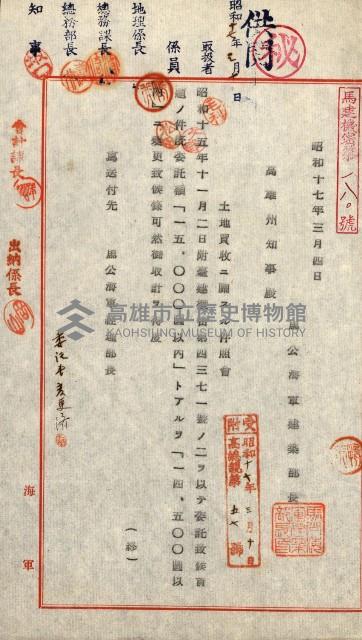 供閲
秘
昭和
取扱者
係員
地理係長
總務課長
總務部長
知事
會計課長
出納係長
馬建機密第一八〇號
昭和十七年三月四日
馬公海軍建築部長
高雄州知事殿
土地買收ニ關スル件照會
昭和十五年十一月二日附馬建機密第四三七一號ノ二ヲ以テ委託致候首
題ノ件既委託額「一五、〇〇〇圓以内」トアルヲ「一四、五〇〇圓以
内」ニ變更致候條可然御取計ヲ得度
寫送付先 馬公海軍經理部長
(終)
受附
昭和十七年三月十日
高雄市立歷史博物館
KAOHSIUNG MUSEUM OF HISTORY
海軍